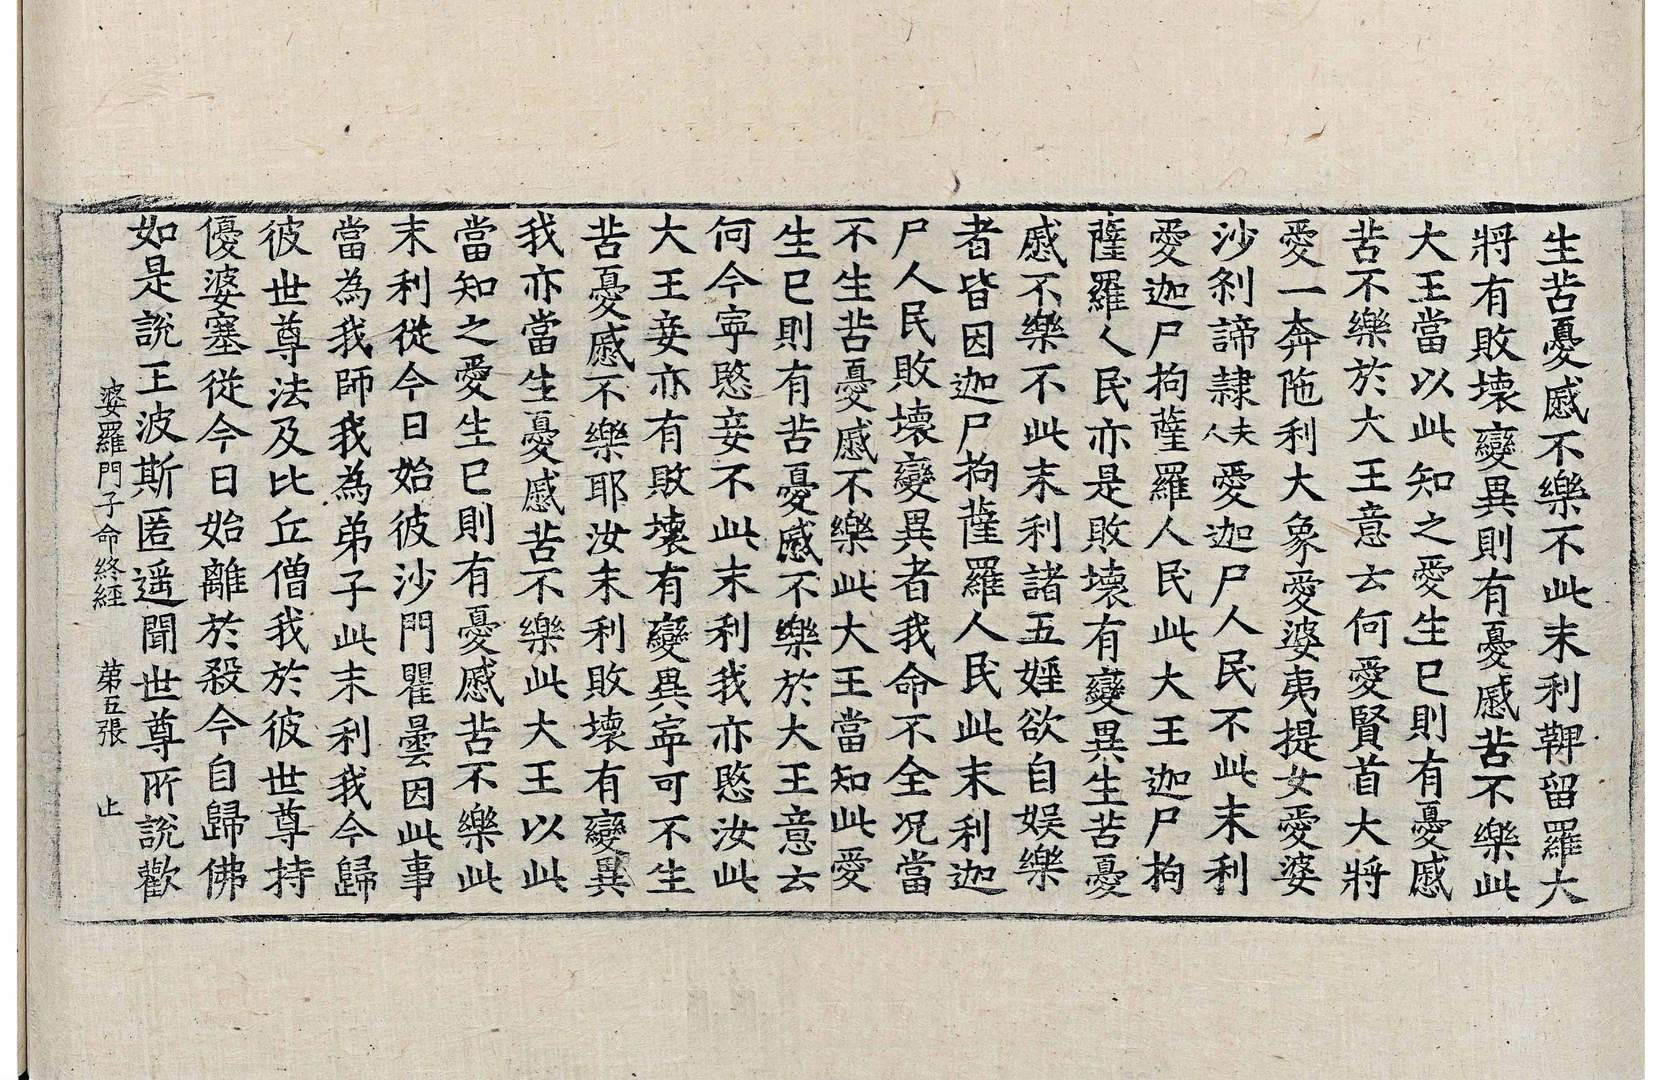 生苦憂慼不樂不此末利鞞留羅大
將有敗壞變異則有憂慼苦不樂此
大王當以此知之愛生已則有憂慼
苦不樂於大王意云何愛賢首大將
愛一奔陁利大象愛婆夷提女愛婆
沙剎諦隸夫人愛迦尸人民不此末利
愛迦尸拘薩羅人民此大王迦尸拘
薩羅人民亦是敗壞有變異生苦憂
慼不樂不此末利諸五婬欲自娛樂
者皆因迦尸拘薩羅人民此末利迦
尸人民敗壞變異者我命不全況當
不生苦憂慼不樂此大王當知此愛
生已則有苦憂慼不樂於大王意云
何今寧愍妾不此末利我亦愍汝此
大王妾亦有敗壞有變異寧可不生
苦憂慼不樂耶汝末利敗壞有變異
我亦當生憂慼苦不樂此大王以此
當知之愛生已則有憂慼苦不樂此
末利從今日始彼沙門瞿曇因此事
當為我師我為弟子此末利我今歸
彼世尊法及比丘僧我於彼世尊持
優婆塞從今日始離於殺今自歸佛
如是說王波斯匿遥聞世尊所說歡
婆羅門子命終經 第五張 止